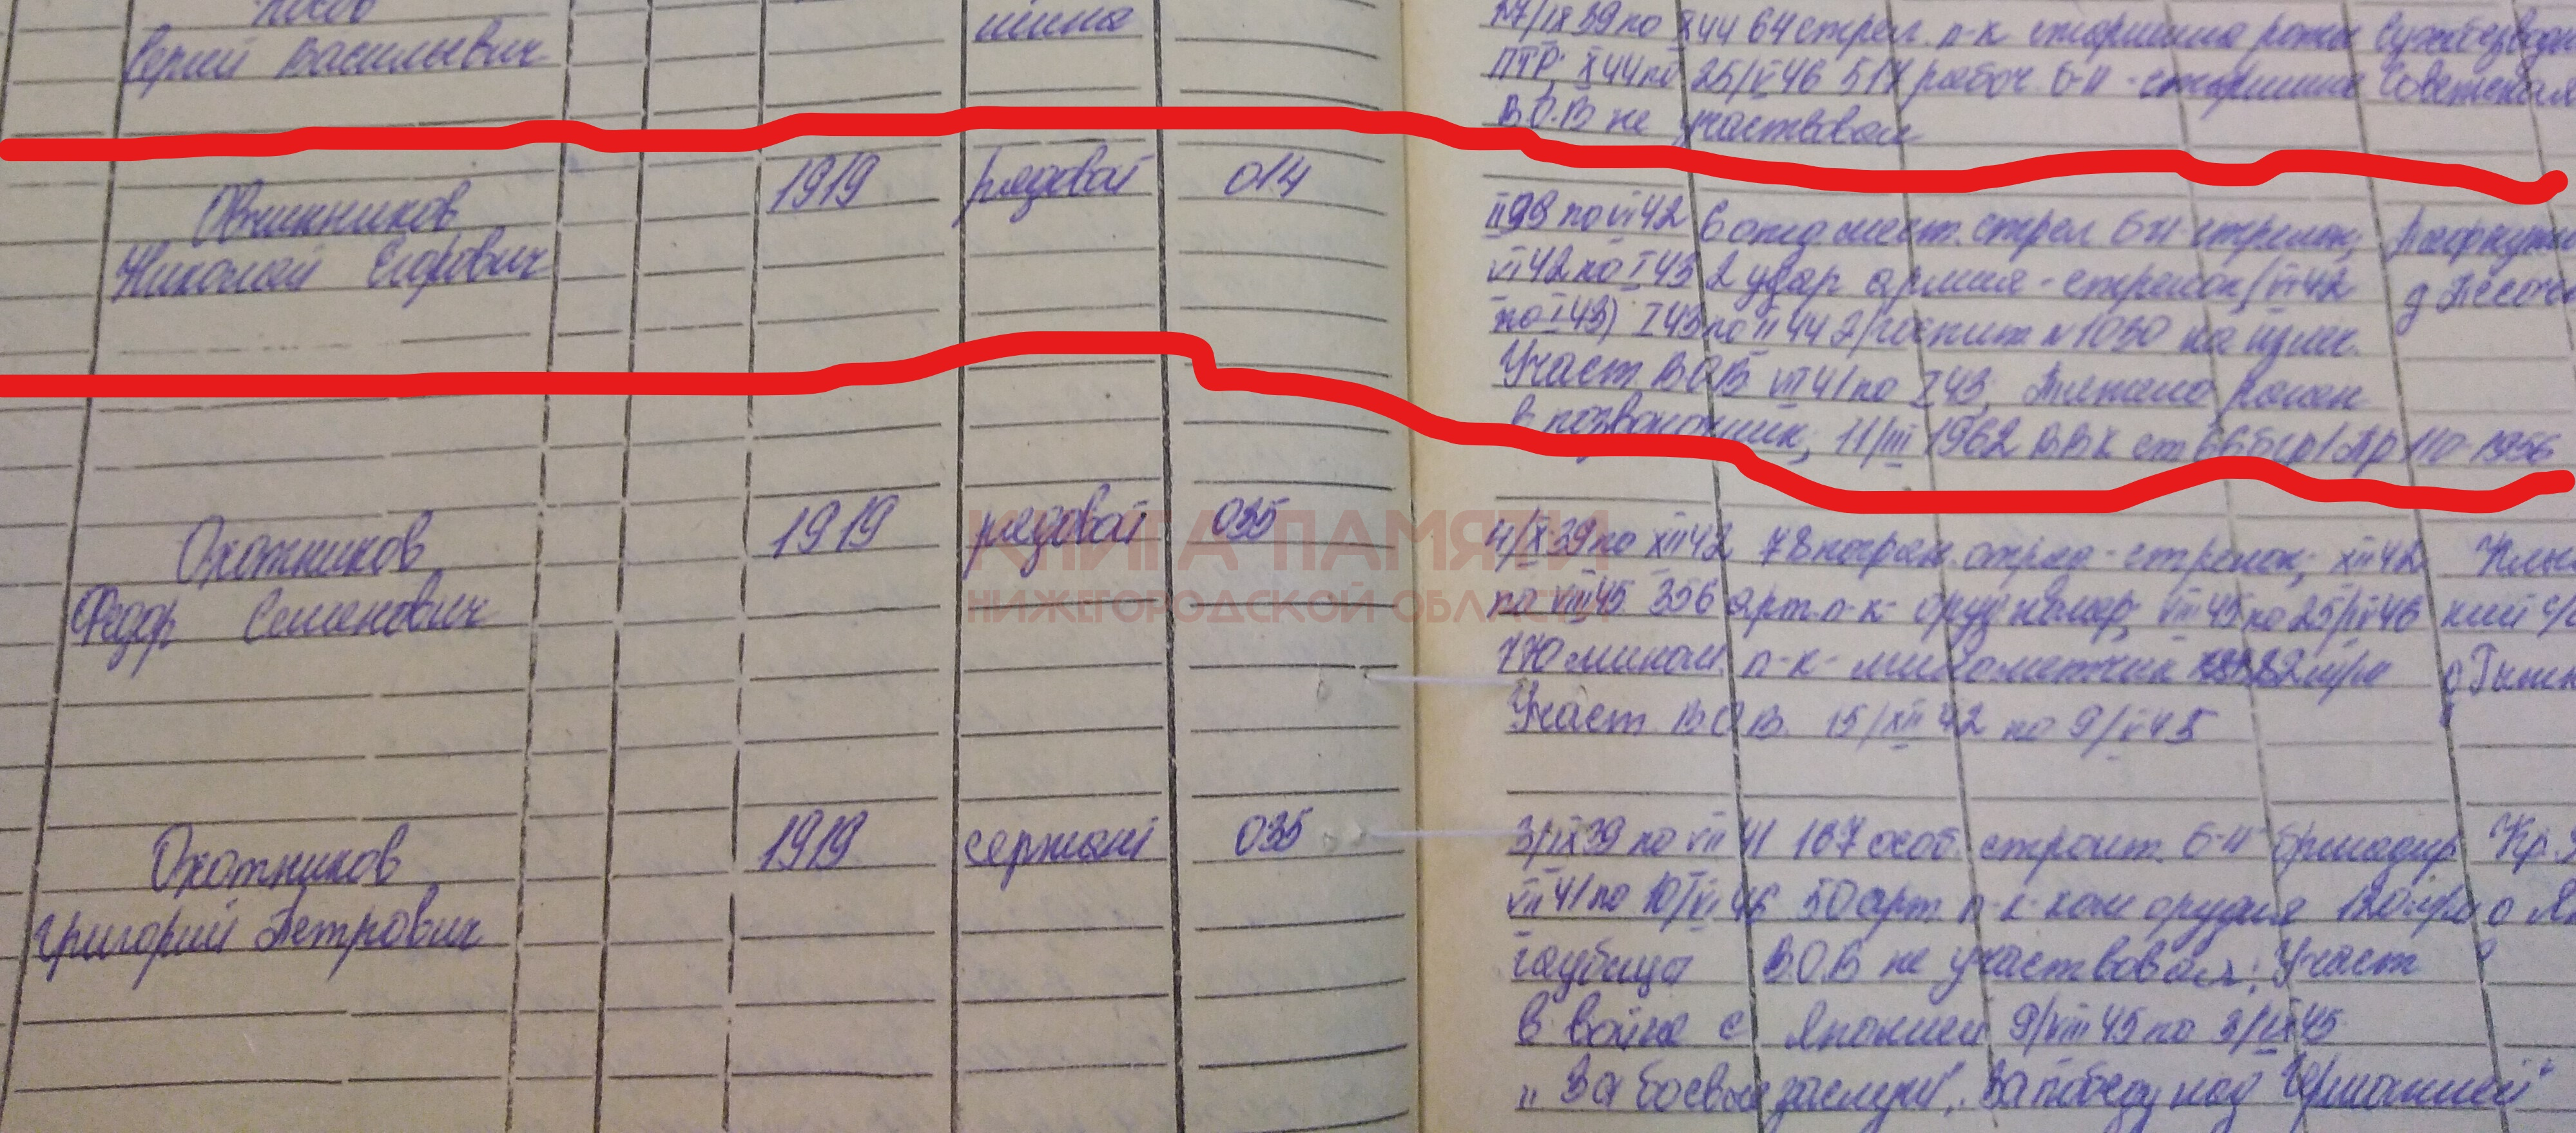 Сергей Васильевич
шина
17/IX 39 по X 44 64 стрел. п-к старшина роты
ПТР; X 44 по 25/V 46 517 рабоч. б-н - старшина
В.О.В не участвовал
Овчинников
Николай Егорович
1919
рядовой
014
II 98 по VI 42 6 отд мест. стрел б-н стрелок;
VI 42 по I 43 2 удар армия - стрелок (VI 42
по I 43) I 43 по II 44 э/госпит № 1030 на излеч.
Участ. ВОВ VII 41 по I 43; Тяжело ранен
в позвоночник; 11/III 1962 ВВК ст 66 б гр I Пр 110-1956
Охотников
Федор Семенович
1919
рядовой
035
4/X-39 по XII 42 78 погран. отряд - стрелок; XII 42
по VIII 45 356 арт. п-к - оруд номер; VIII 45 по 25/V 46
770 мином. п-к - минометчик 82 м/м
Участ. ВОВ. 15/XII 42 по 9/V 45
Охотников
Григорий Петрович
1919
сержант
035
3/IX 39 по VII 41 167 особ. строит. б-н бригадир
VII 41 по 10/VI 46 50 арт. п-к - ком орудия 120 м/м
гаубица В.О.В не участвовал; Участ
в войне с Японией 9/VIII 45 по 3/IX 45
"За боевые заслуги", "За победу над Германией"
КНИГА ПАМЯТИ
НИЖЕГОРОДСКОЙ ОБЛАСТИ